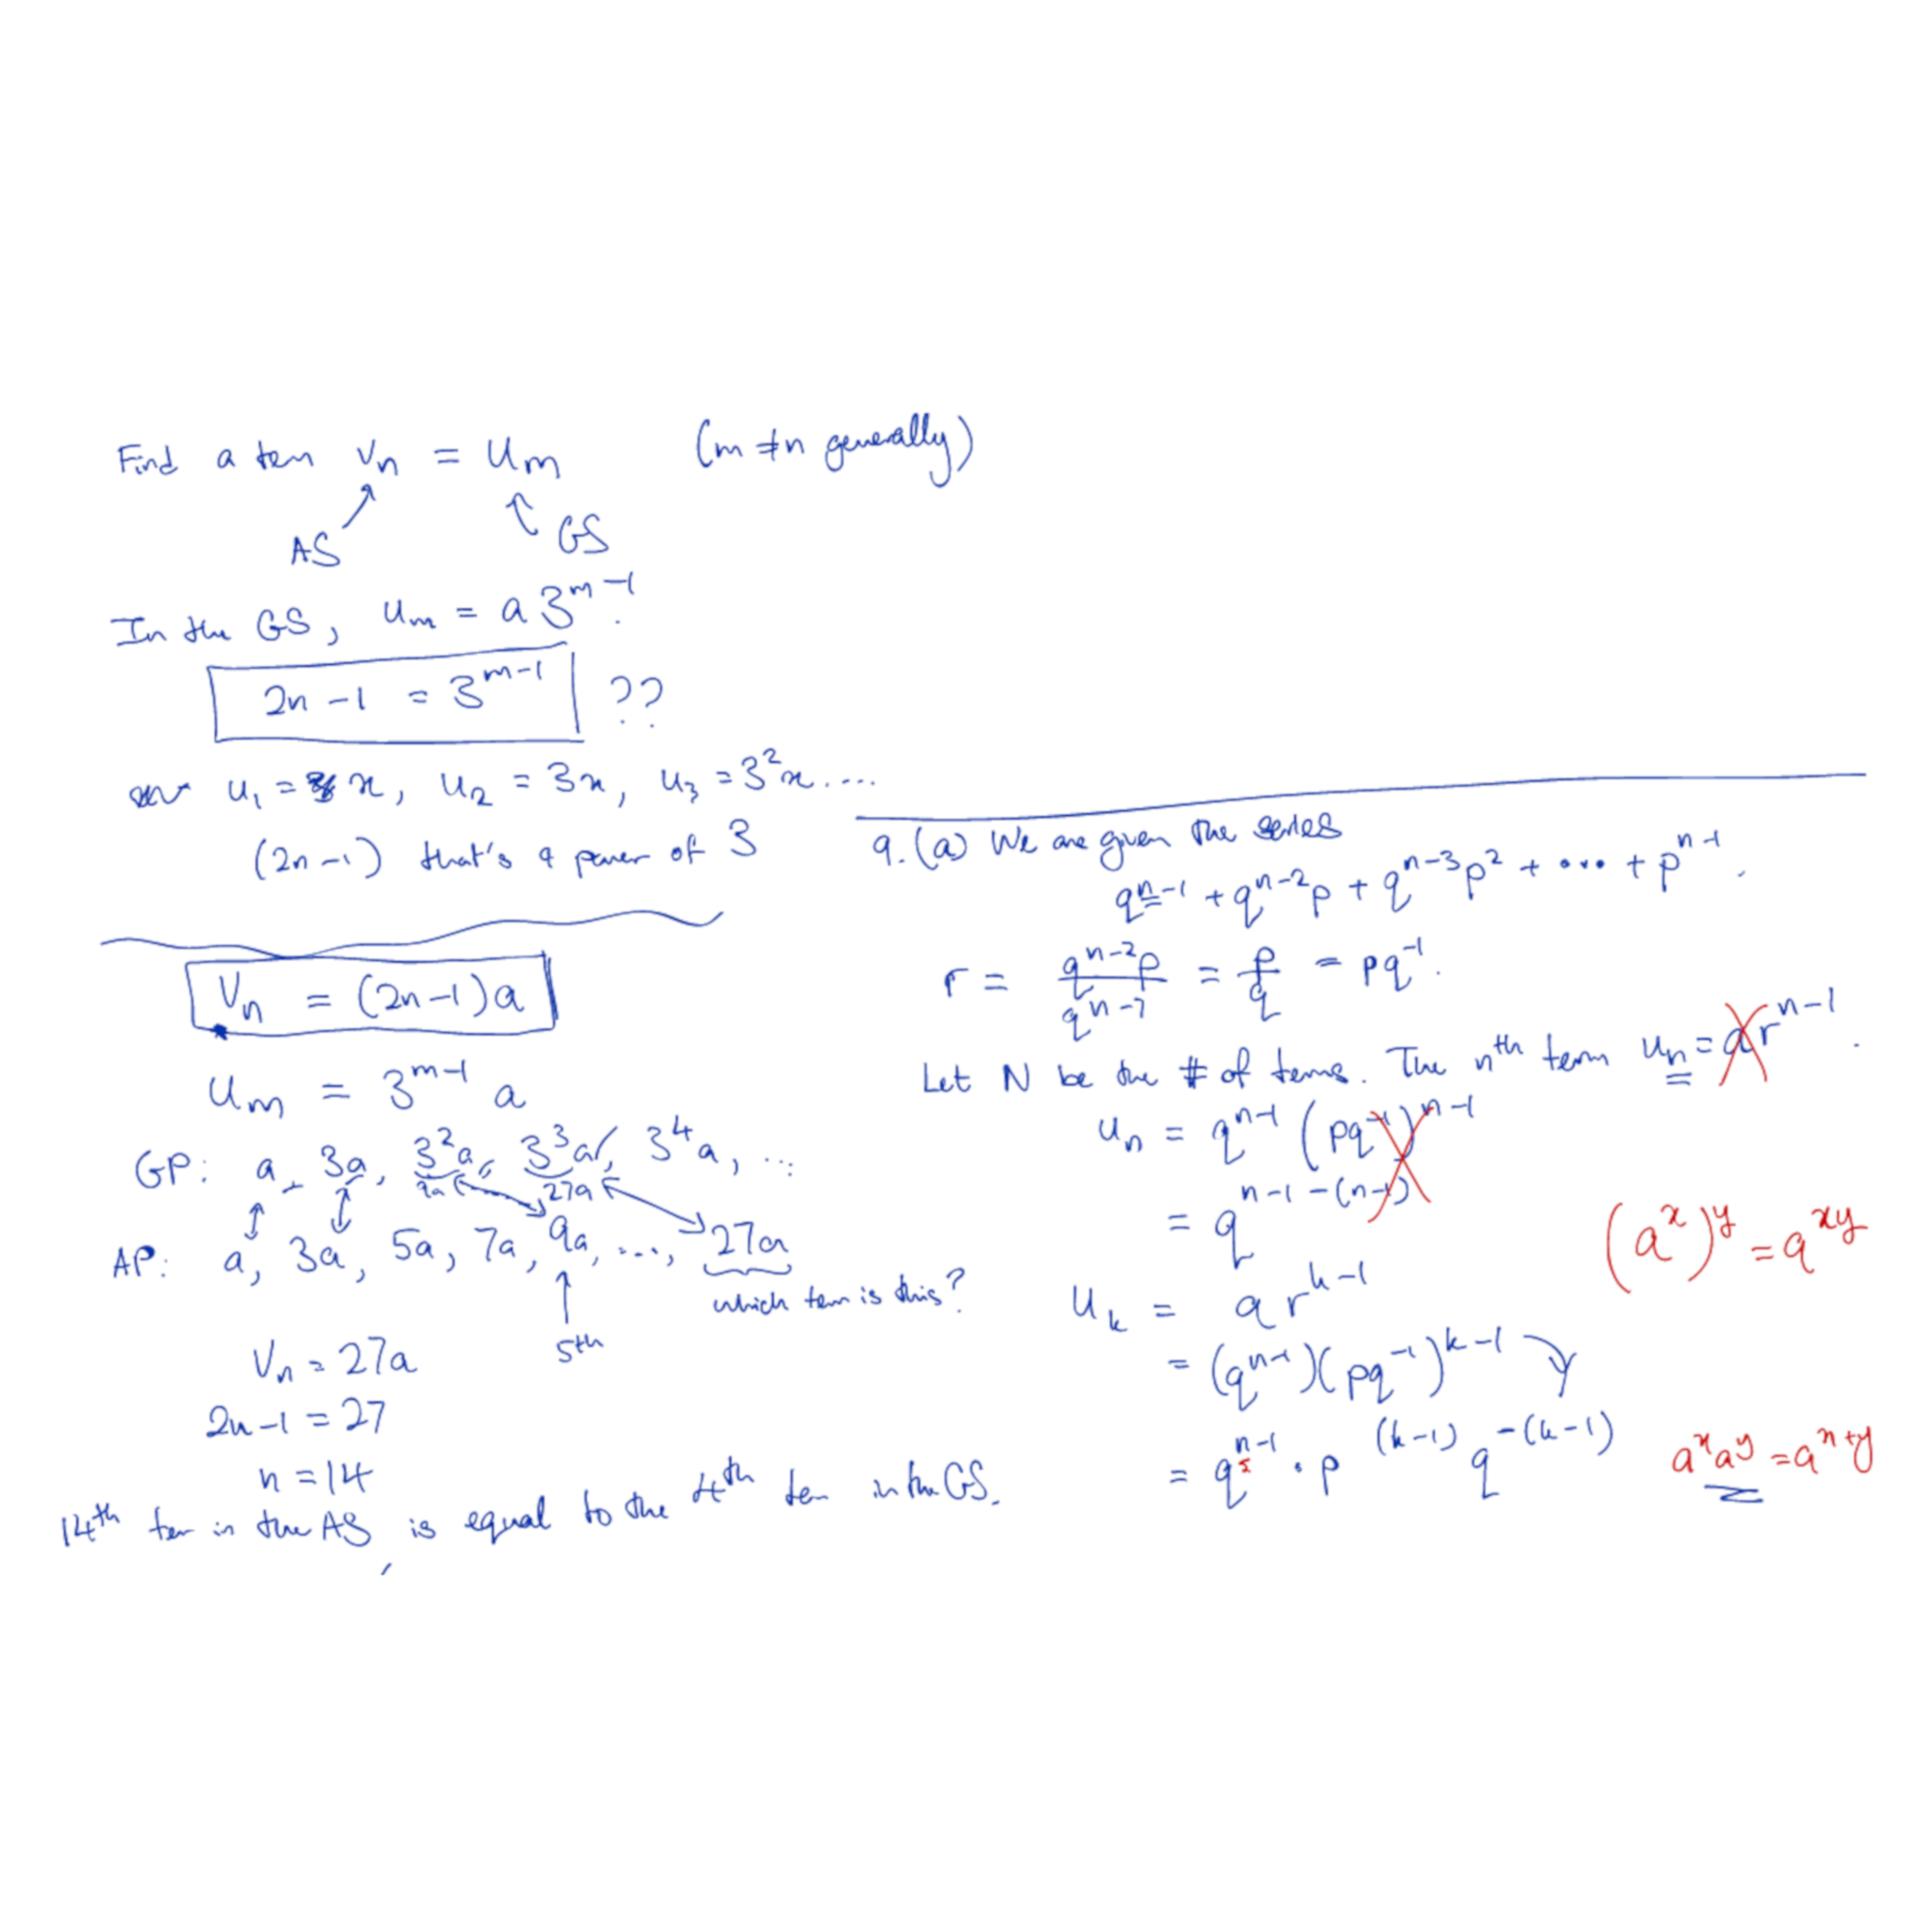 Find a term vₙ = uₘ (m ≠ n generally)
AS
GS
In the GS, uₘ = a 3^{m-1}.
2n - 1 = 3^{m-1} ??
u₁ = x, u₂ = 3x, u₃ = 3²x....
(2n-1) that's a power of 3
Vₙ = (2n-1)a
Uₘ = 3^{m-1} a
GP: a, 3a, 3²a, 3³a, 3⁴a, ...
9a 27a
AP: a, 3a, 5a, 7a, 9a, ...., 27a
5th
which term is this?
Vₙ = 27a
2n-1 = 27
n = 14
14th term in the AS, is equal to the 4th term in the GS.
9. (a) We are given the series
q^{n-1} + q^{n-2}p + q^{n-3}p² + ... + p^{n-1}.
r = q^{n-2}p / q^{n-1} = p/q = pq^{-1}.
Let N be the # of terms. The nth term uₙ = ar^{n-1}.
uₙ = q^{n-1} (pq^{-1})^{n-1}
= q^{n-1-(n-1)}
(a^x)^y = a^{xy}
U_k = a r^{k-1}
= (q^{n-1})(pq^{-1})^{k-1}
= q^{n-1} · p^{(k-1)} q^{-(k-1)}
a^x a^y = a^{x+y}